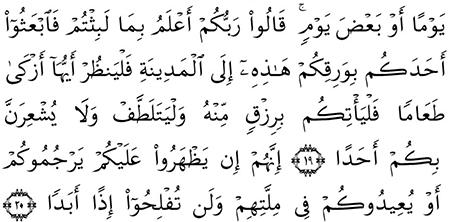 يَوۡمًا أَوۡ بَعۡضَ يَوۡمٖۚ قَالُواْ رَبُّكُمۡ أَعۡلَمُ بِمَا لَبِثۡتُمۡ فَٱبۡعَثُوٓاْ
أَحَدَكُم بِوَرِقِكُمۡ هَٰذِهِۦٓ إِلَى ٱلۡمَدِينَةِ فَلۡيَنظُرۡ أَيُّهَآ أَزۡكَىٰ
طَعَامٗا فَلۡيَأۡتِكُم بِرِزۡقٖ مِّنۡهُ وَلۡيَتَلَطَّفۡ وَلَا يُشۡعِرَنَّ
بِكُمۡ أَحَدًا ١٩ إِنَّهُمۡ إِن يَظۡهَرُواْ عَلَيۡكُمۡ يَرۡجُمُوكُمۡ
أَوۡ يُعِيدُوكُمۡ فِي مِلَّتِهِمۡ وَلَن تُفۡلِحُوٓاْ إِذًا أَبَدٗا ٢٠